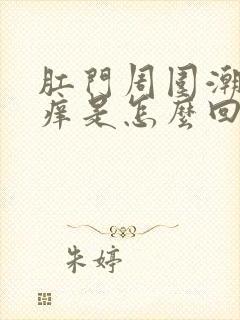 肛門周圍潮
痒是怎麼回
朱婷